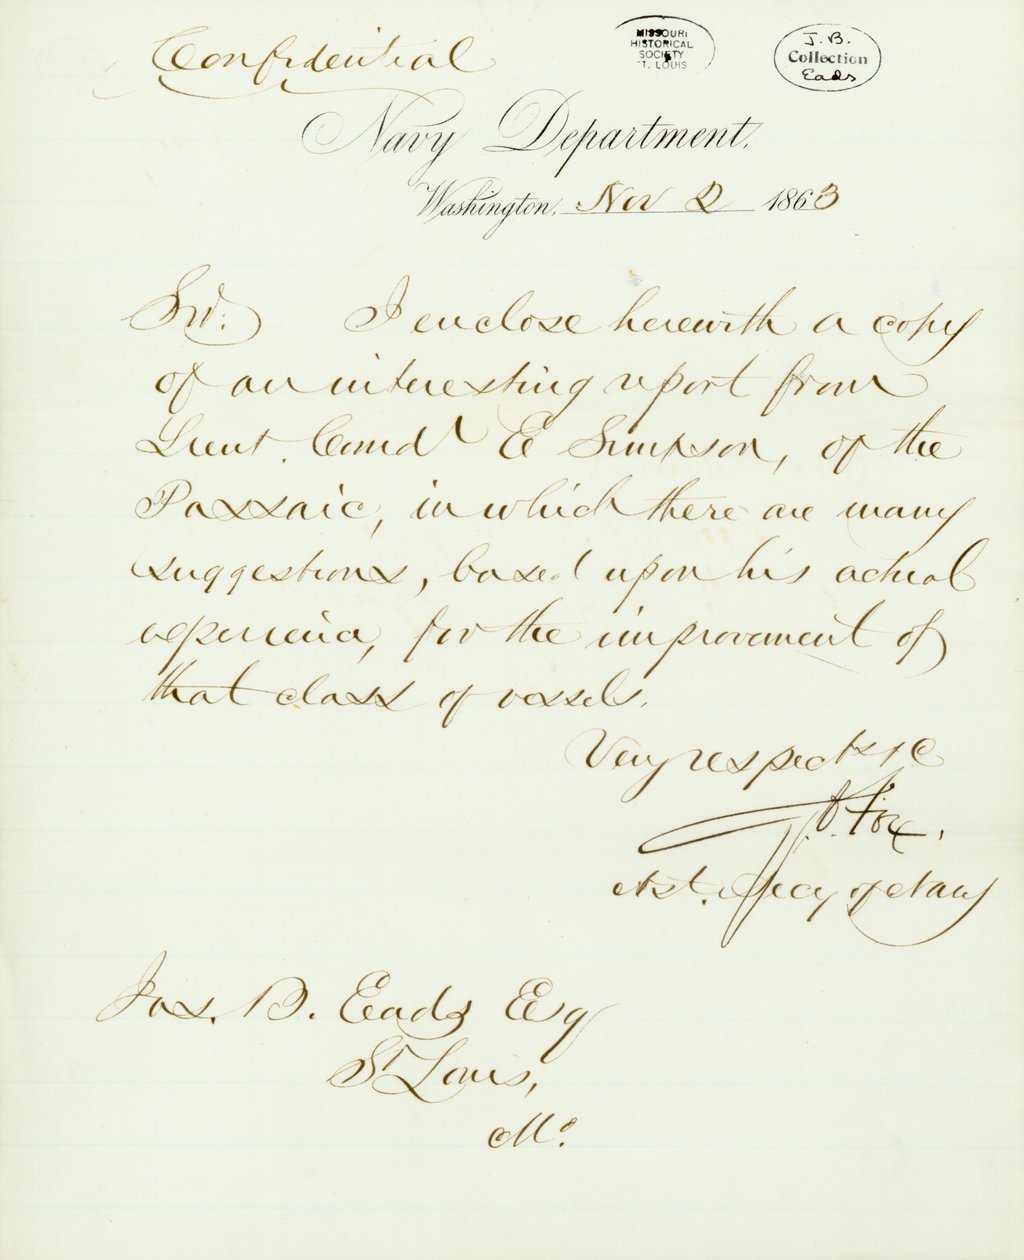 Confidential
MISSOURI
HISTORICAL
SOCIETY
ST. LOUIS
J. B.
Collection
Eads
Navy Department,
Washington, Nov 2 1863
Sir: I enclose herewith a copy
of an interesting report from
Lieut. Comdr E Simpson, of the
Passaic, in which there are many
suggestions, based upon his actual
experience, for the improvement of
that class of vessels.
Very respects &c
G. V. Fox.
Ast. Secy of Navy
Jas. B. Eads Esq
St Louis,
Mo.